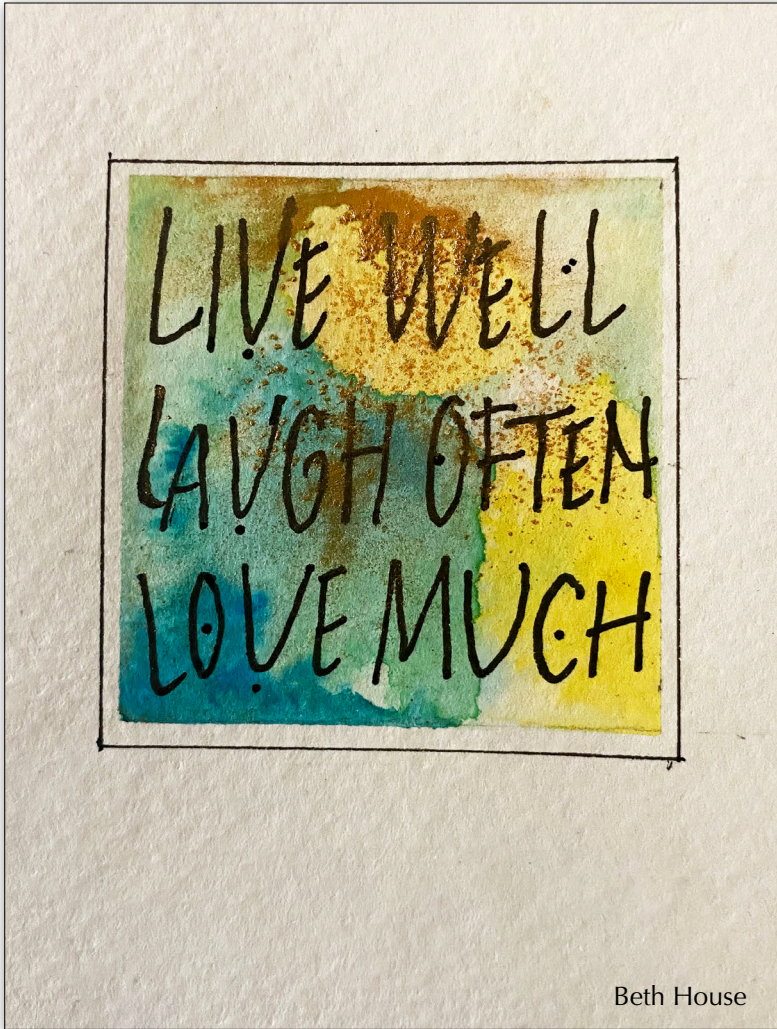 LIVE WELL
LAUGH OFTEN
LOVE MUCH
Beth House